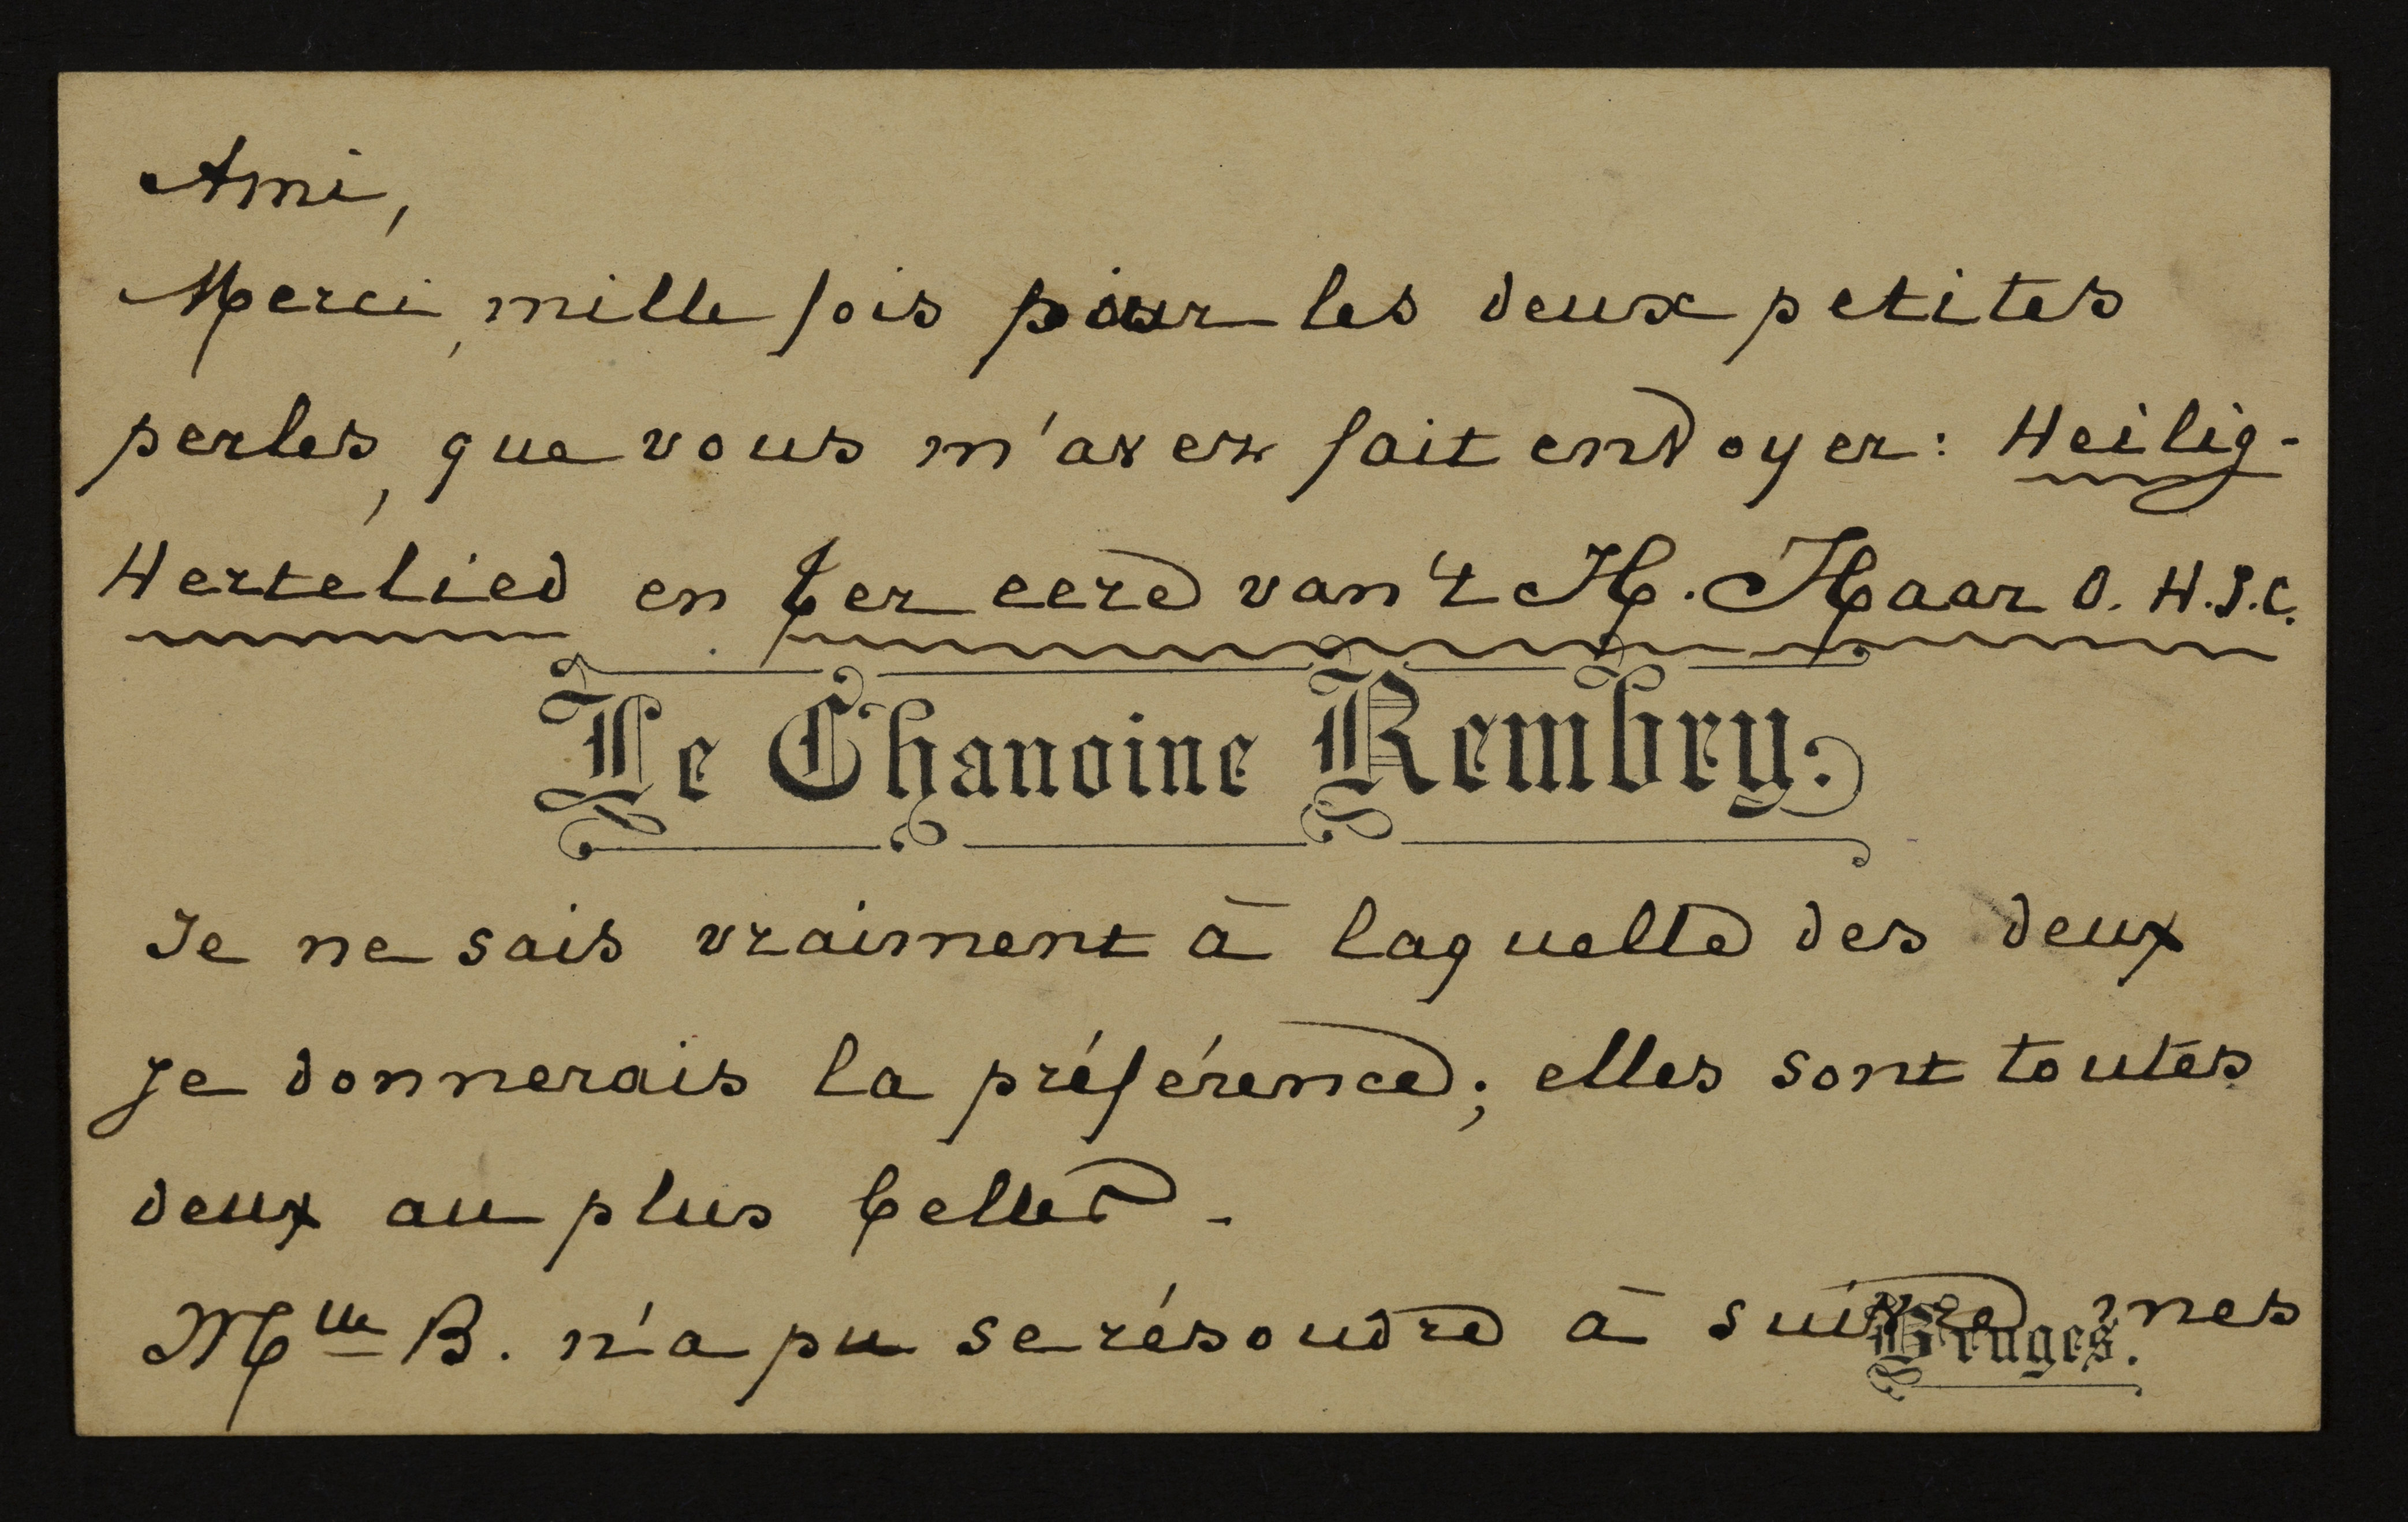 Ami,
Merci, mille fois pour les deux petites
perles, que vous m'avez fait envoyer: Heilig-
Hertelied en ter eere van 't H. Haar O. H. J. C.
Le Chanoine Rembry.
Je ne sais vraiment à laquelle des deux
je donnerais la préférence; elles sont toutes
deux au plus belles.
Mlle B. n'a pu se résoudre à suivre mes
Bruges.